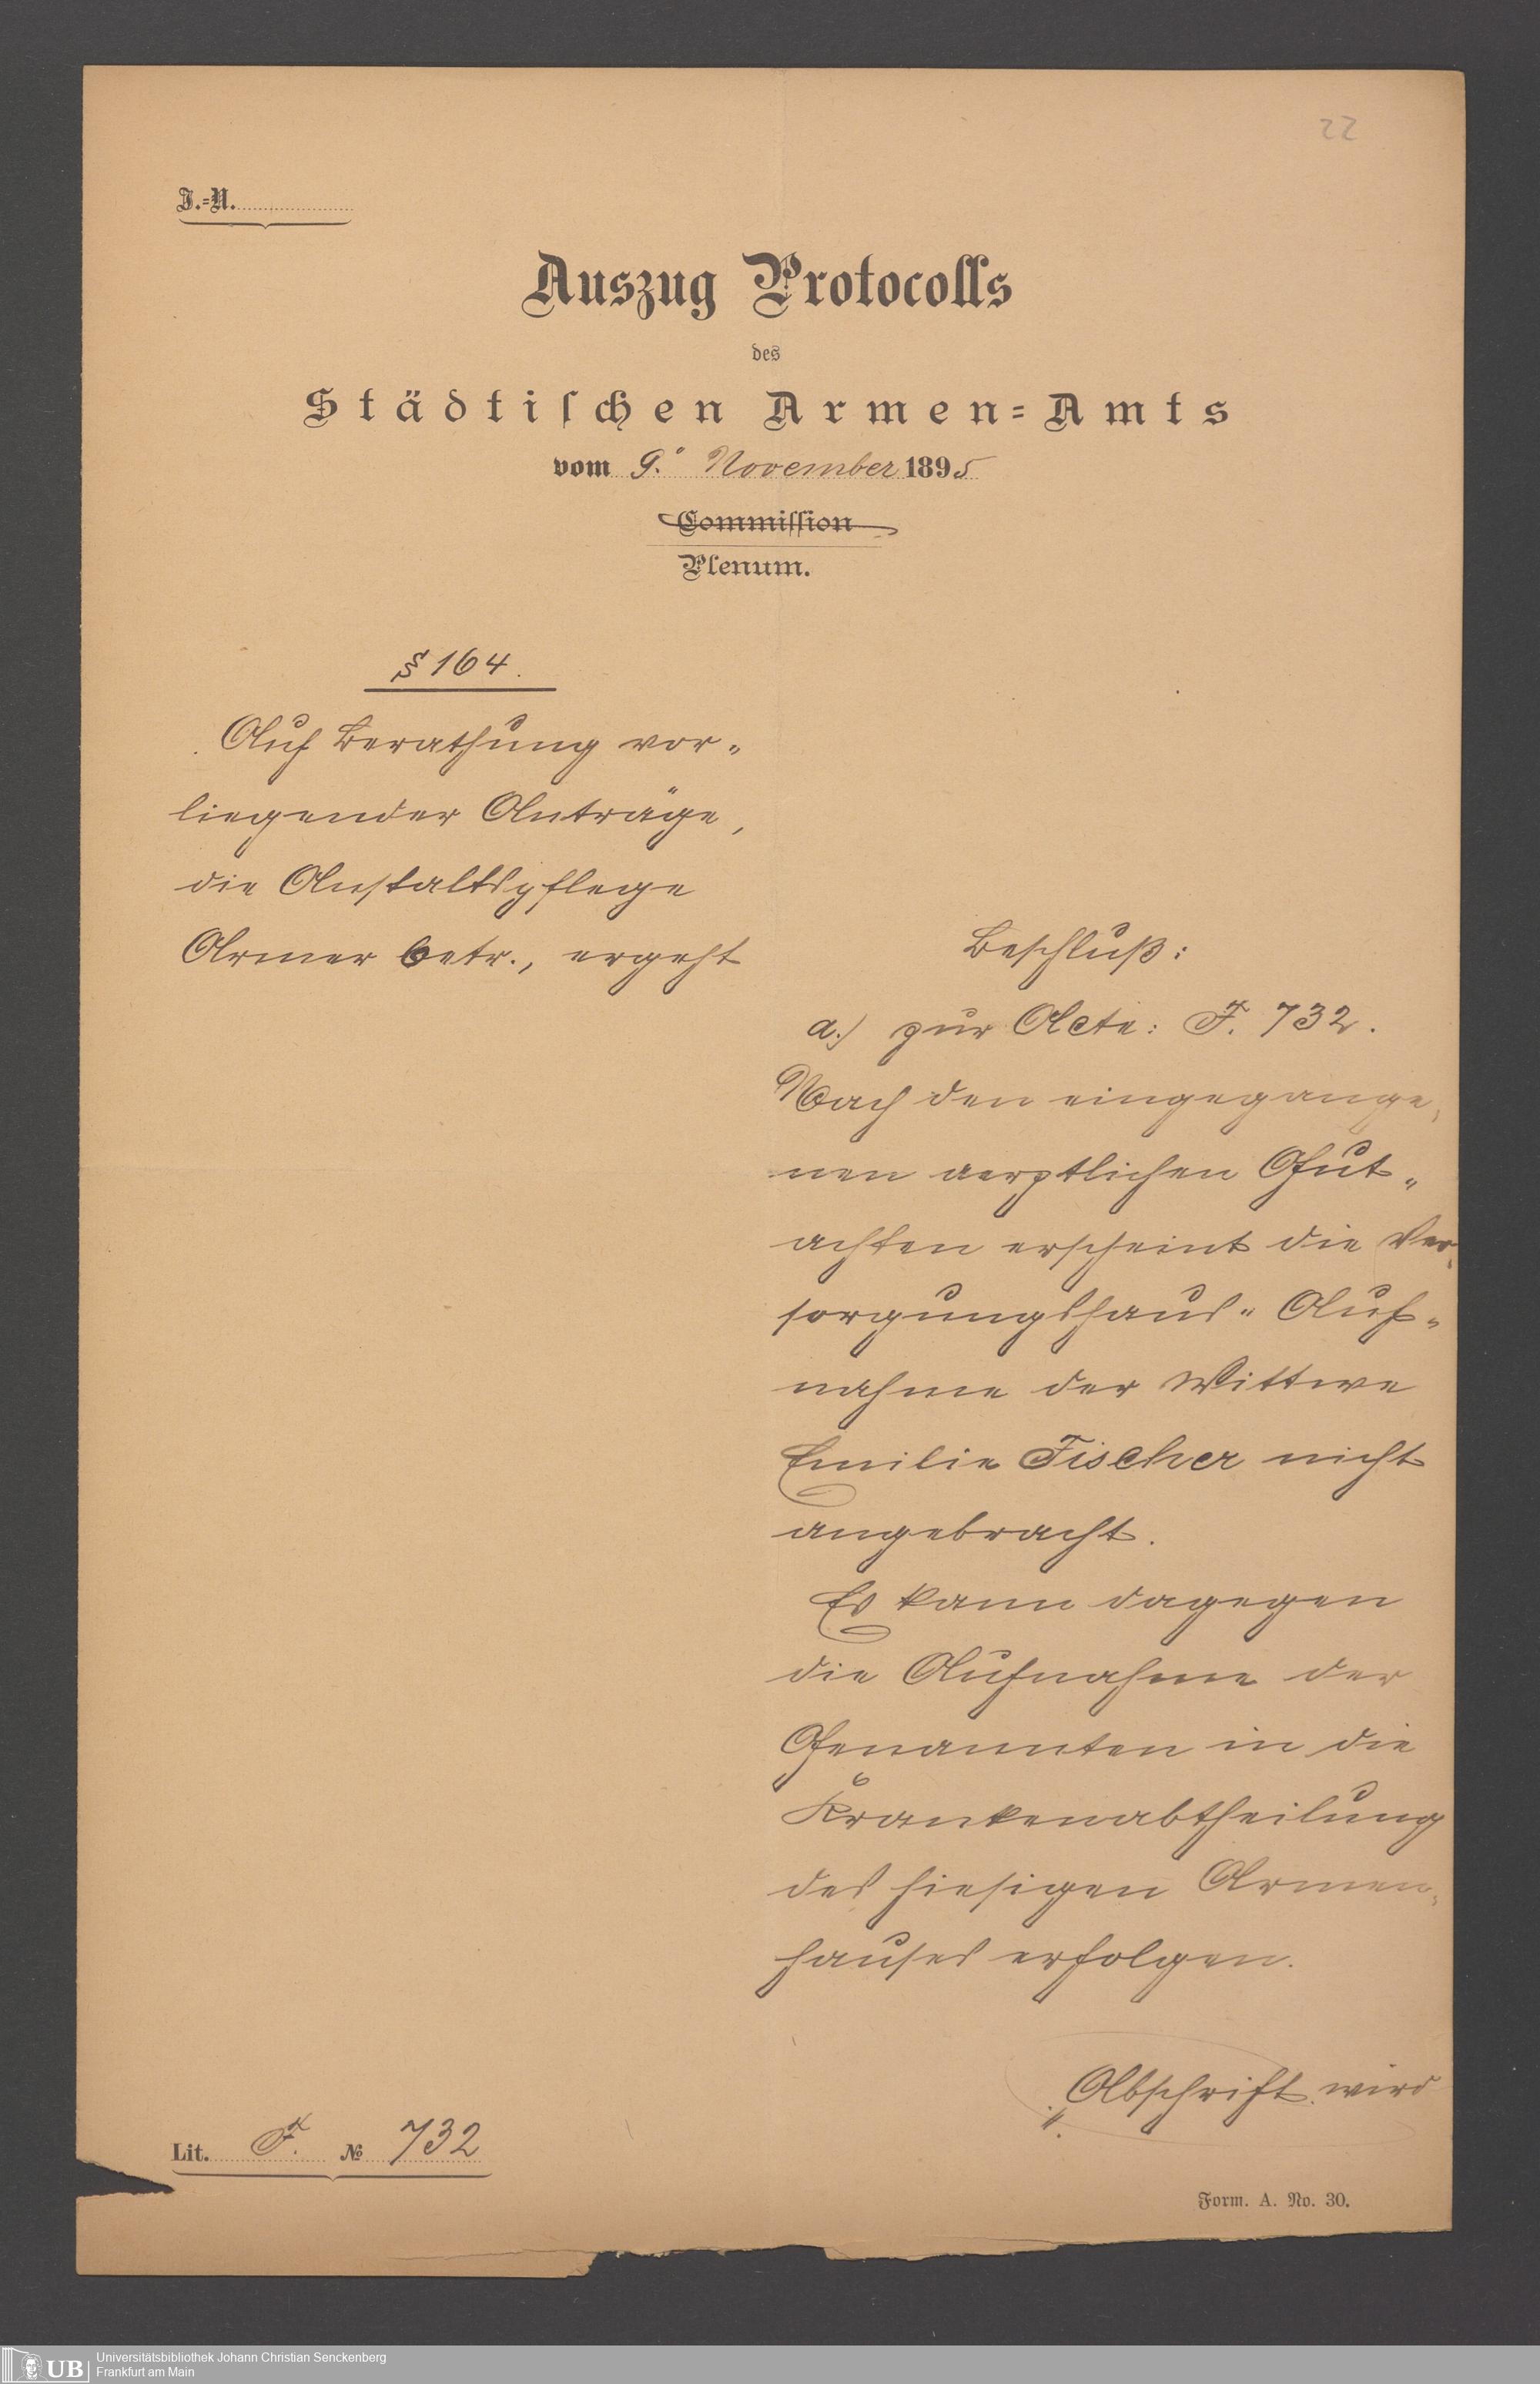 22
J.=N.
Auszug Protocolls
des
Städtischen Armen=Amts
vom 9. November 1895
Commission
Plenum.
§ 164.
Auf Berathung vor-
liegender Anträge,
die Anstaltspflege
Armer betr., ergeht
Beschluß:
a.) zur Acte: F. 732.
Nach den eingegange-
nen aerztlichen Gut-
achten erscheint die Ver-
sorgungshaus-Auf-
nahme der Wittwe
Emilie Fischer nicht
angebracht.
Es kann dagegen
die Aufnahme der
Genannten in die
Krankenabtheilung
des hiesigen Armen-
hauses erfolgen.
Abschrift wird
Lit. F. № 732
Form. A. No. 30.
UB Universitätsbibliothek Johann Christian Senckenberg
Frankfurt am Main